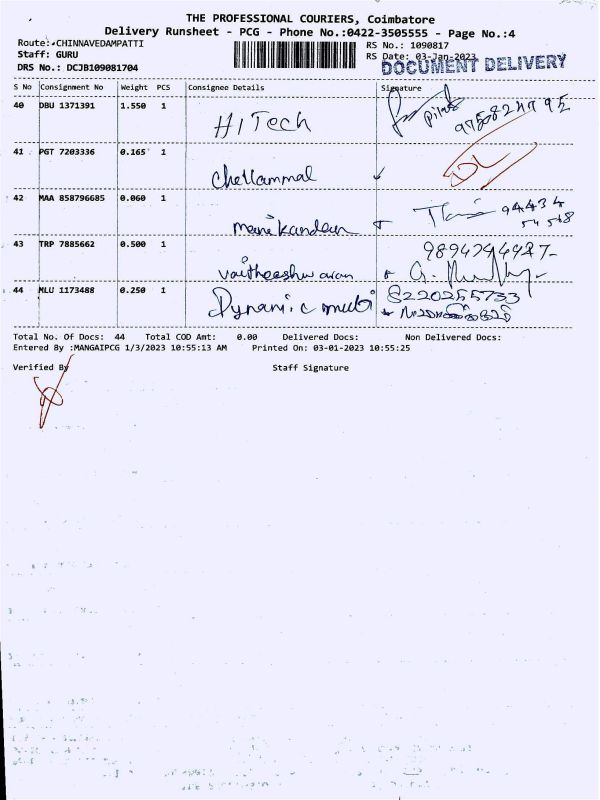 THE PROFESSIONAL COURIERS, Coimbatore
Delivery Runsheet - PCG - Phone No.:0422-3505555 - Page No.:4
Route: CHINNAVEDAMPATTI RS No.: 1090817
Staff: GURU RS Date: 03-Jan-2023
DRS No.: DCJB109081704 DOCUMENT DELIVERY
S No Consignment No Weight PCS Consignee Details Signature
40 DBU 1371391 1.550 1 HiTech
41 PGT 7203336 0.165 1 Chellammal DL
42 MAA 858796685 0.060 1 manikandan 94434
54548
43 TRP 7885662 0.500 1 vaitheeshwaran
44 MLU 1173488 0.250 1 Dynamic 8220255733
Total No. Of Docs: 44 Total COD Amt: 0.00 Delivered Docs: Non Delivered Docs:
Entered By :MANGAIPCG 1/3/2023 10:55:13 AM Printed On: 03-01-2023 10:55:25
Verified By Staff Signature